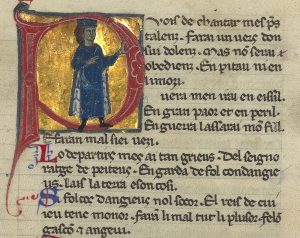 Pois de chantar mes ps
talenz. Farai un uers don
sui dolenz. Mas no serai
obedienz. En pitau ni en
limozi.
uera men irai en eissil.
En gran paor et en peril.
En guerra laissarai mo fill.
E faran mal siei uezi.
Lo departirs mes aitan grieus. Del seigno
ratge de peiteus. En garda de fol condangie
us. Lais la terra e son cosi.
Si folcos dangieus nol socor. El reis de cui
ieu tenc monor. Faran li mal tut li plusor. felo
gasco et angeui.